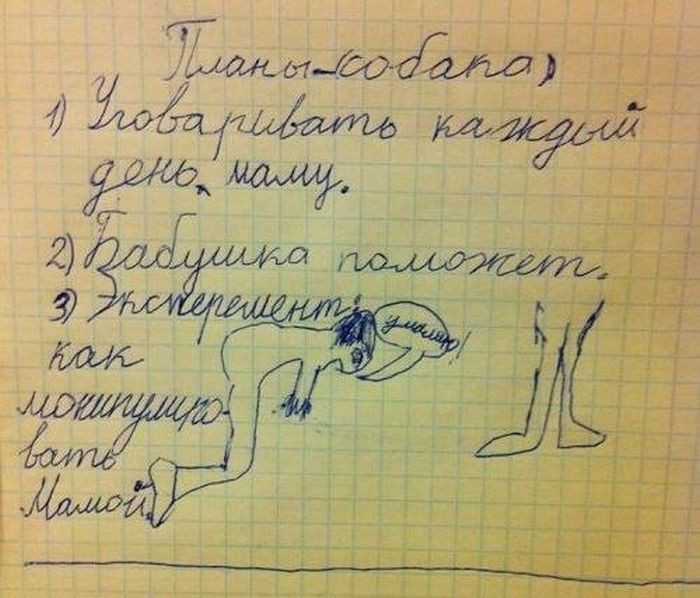 Планы-собака,
1) Уговаривать каждый
день маму.
2) Бабушка поможет.
3) Эксперемент:
умоляю!
как
монипулиро-
вать
Мамой.